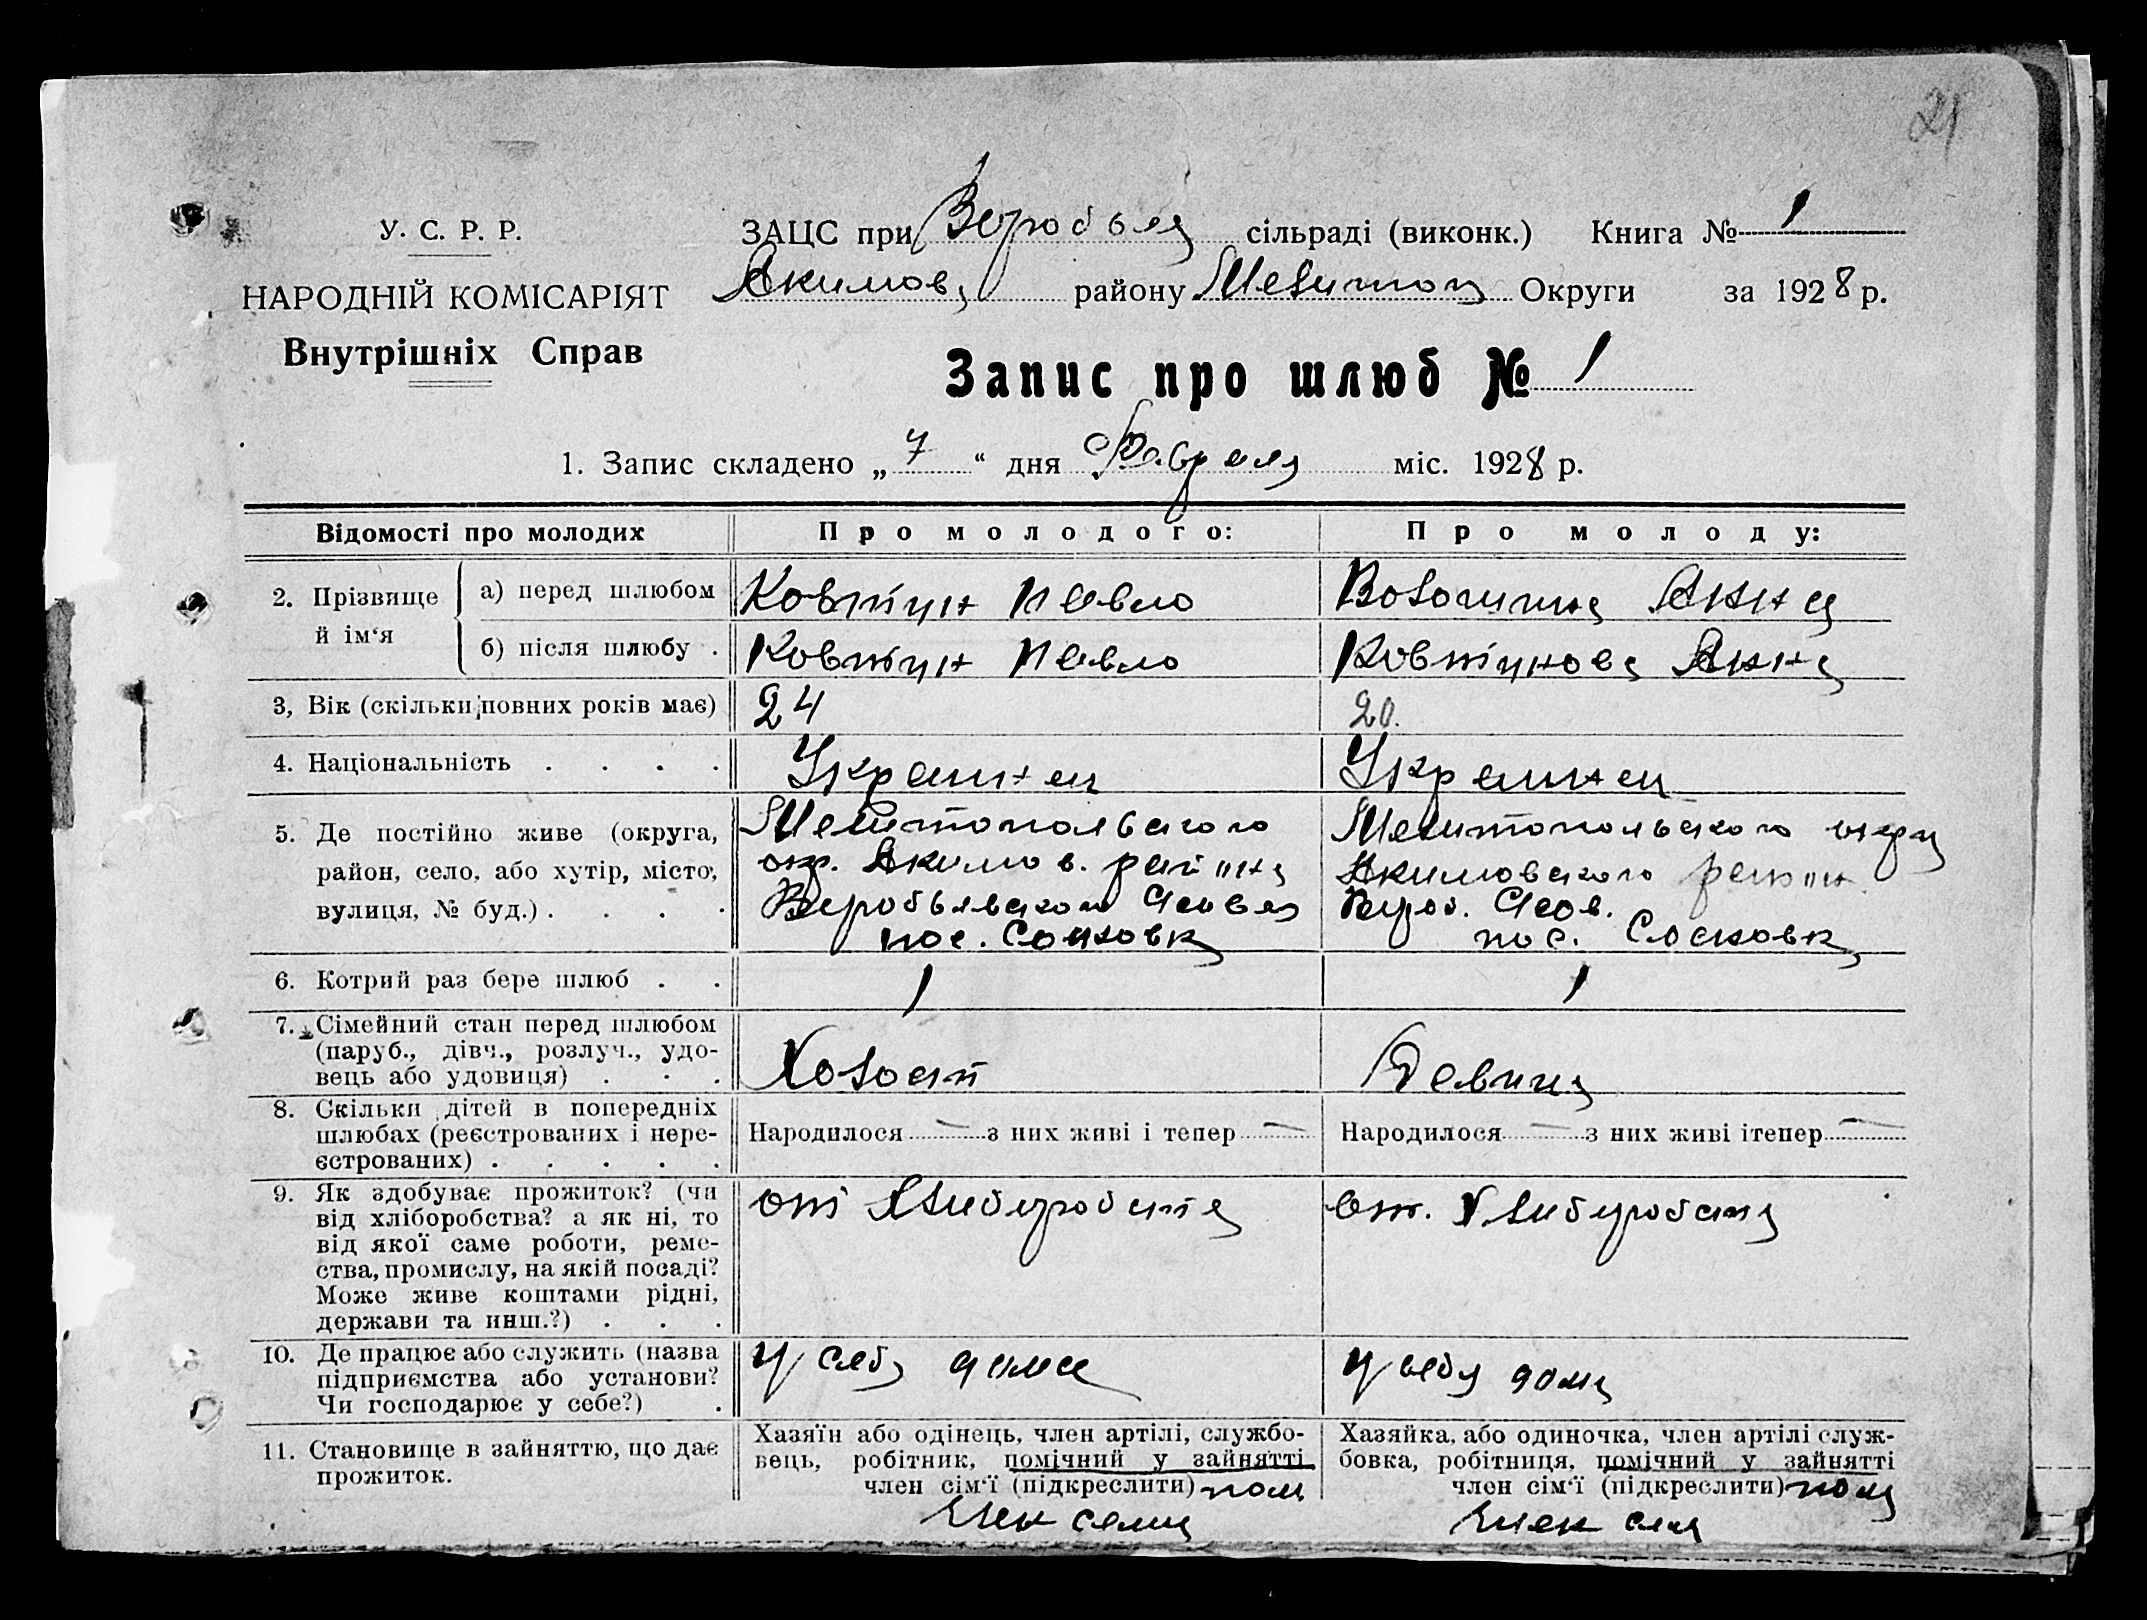 21
У. С. Р. Р.
НАРОДНІЙ КОМІСАРІЯТ
Внутрішніх Справ
ЗАЦС при Воробьев сільраді (виконк.) Книга № 1
Акимов району Мелитоп Округи за 1928 р.
Запис про шлюб № 1
1. Запис складено „ 7 “ дня Февраля міс. 1928 р.
Відомості про молодих
Про молодого:
Про молоду:
2. Прізвище й ім‘я
а) перед шлюбом
Ковтун Павло
Волошина Анна
б) після шлюбу .
Ковтун Павло
Ковтунова Анна
3, Вік (скільки повних років має)
24
20.
4. Національність . . . .
Украинец
Украинец
5. Де постійно живе (округа,
район, село, або хутір, місто,
вулиця, № буд.) . . . .
Мелитопольского
окр. Акимов. района
Воробьевского
пос.
Мелитопольского окру
Акимовского район
пос.
6. Котрий раз бере шлюб . .
1
1
7. Сімейний стан перед шлюбом
(паруб., дівч., розлуч., удо-
вець або удовиця) . . .
Холост
Девица
8. Скільки дітей в попередніх
шлюбах (реєстрованих і нере-
єстрованих) . . . . .
Народилося — з них живі і тепер —
Народилося — з них живі ітепер —
9. Як здобуває прожиток? (чи
від хліборобства? а як ні, то
від якої саме роботи, реме-
ства, промислу, на якій посаді?
Може живе коштами рідні,
держави та инш.?) . . .
от Хлиборобства
от. Хлиборобства
10. Де працює або служить (назва
підприємства або установи?
Чи господарює у себе?) .
у себя дома
у себя дома
11. Становище в зайняттю, що дає
прожиток.
Хазяїн або одінець, член артілі, службо-
вець, робітник, помічний у зайнятті
член сім‘ї (підкреслити) пом
член семи
Хазяйка, або одиночка, член артілі служ-
бовка, робітниця, помічний у зайнятті
член сім‘ї (підкреслити) пом
член сем